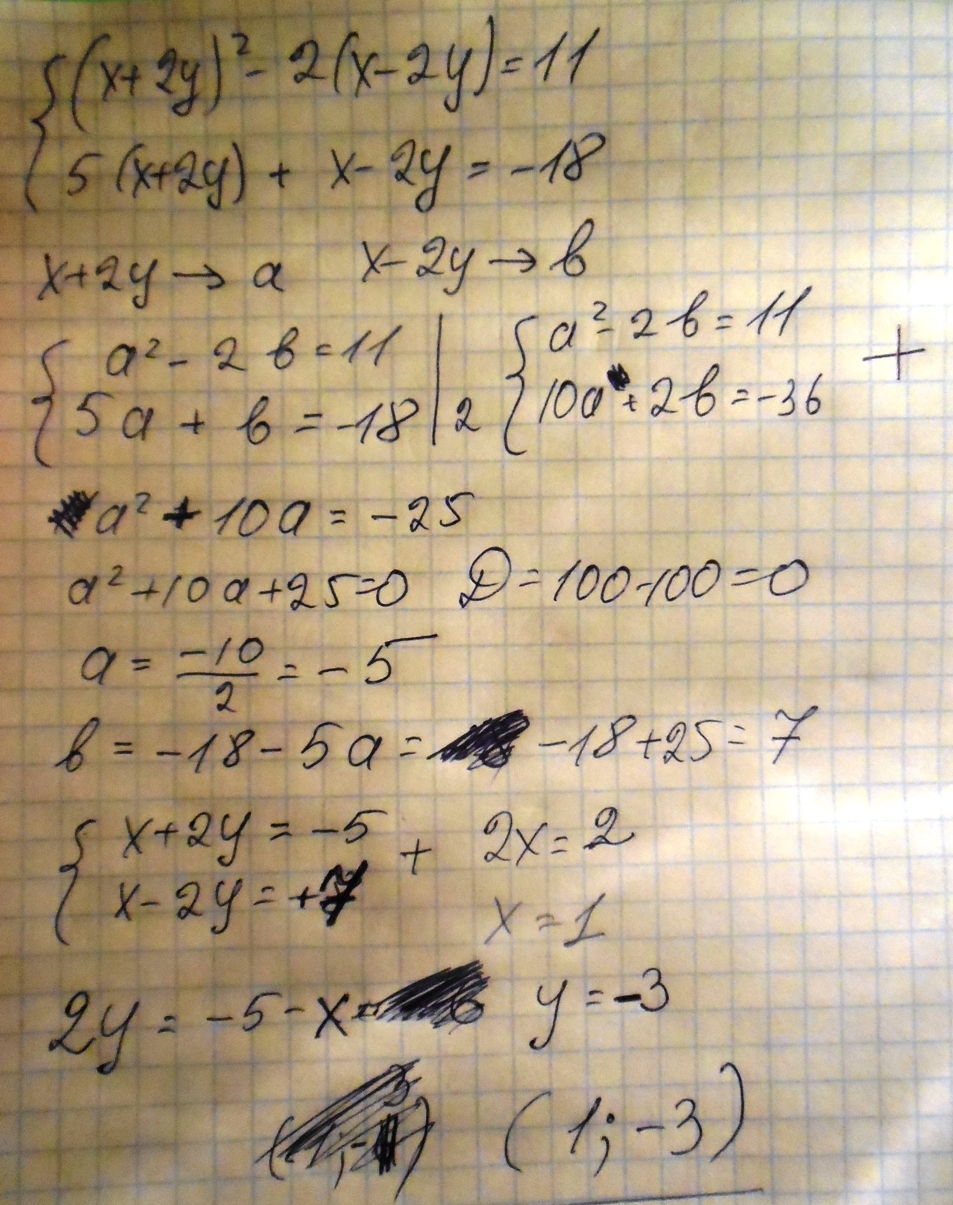 (x+2y)² - 2(x-2y) = 11
5(x+2y) + x-2y = -18
x+2y → a   x-2y → b
a² - 2b = 11 | a² - 2b = 11 +
5a + b = -18 | 2   10a + 2b = -36
a² + 10a = -25
a² + 10a + 25 = 0   D = 100-100 = 0
a = -10/2 = -5
b = -18 - 5a = -18 + 25 = 7
x+2y = -5 +   2x = 2
x-2y = +7   x = 1
2y = -5 - x =   y = -3
(1; -3)